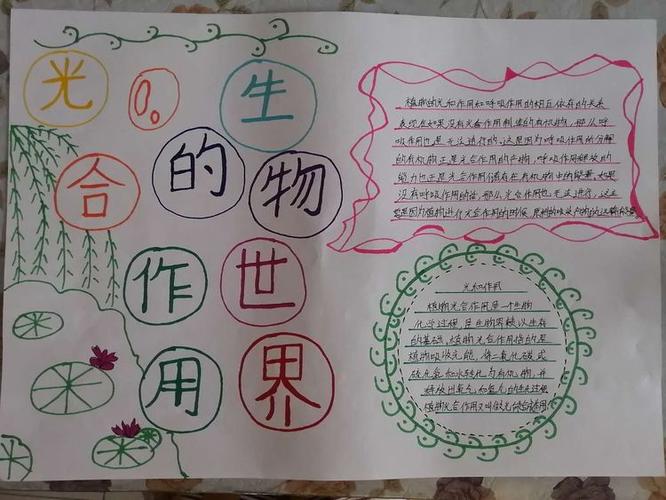 光
合
作
用
的
生
物
世
界
植物的光和作用和呼吸作用的相互依存的关系
表现在如果没有光合作用制造的有机物,那么呼
吸作用也是无法进行的,这是因为呼吸作用所分解
的有机物正是光合作用的产物,呼吸作用释放的
能力也正是光合作用储存在有机物中的能量,如果
没有呼吸作用的话,那么光合作用也无法进行,这主
要是因为植物进行光合作用的时候,原料的吸收
光和作用
植物光合作用是一个生物
化学过程,是生物赖以生存
的基础,植物光合作用指的是
植物吸收光能,将二氧化碳或
硫化氢和水转化为有机物,并
释放出氧气
植物光合作用又叫做光